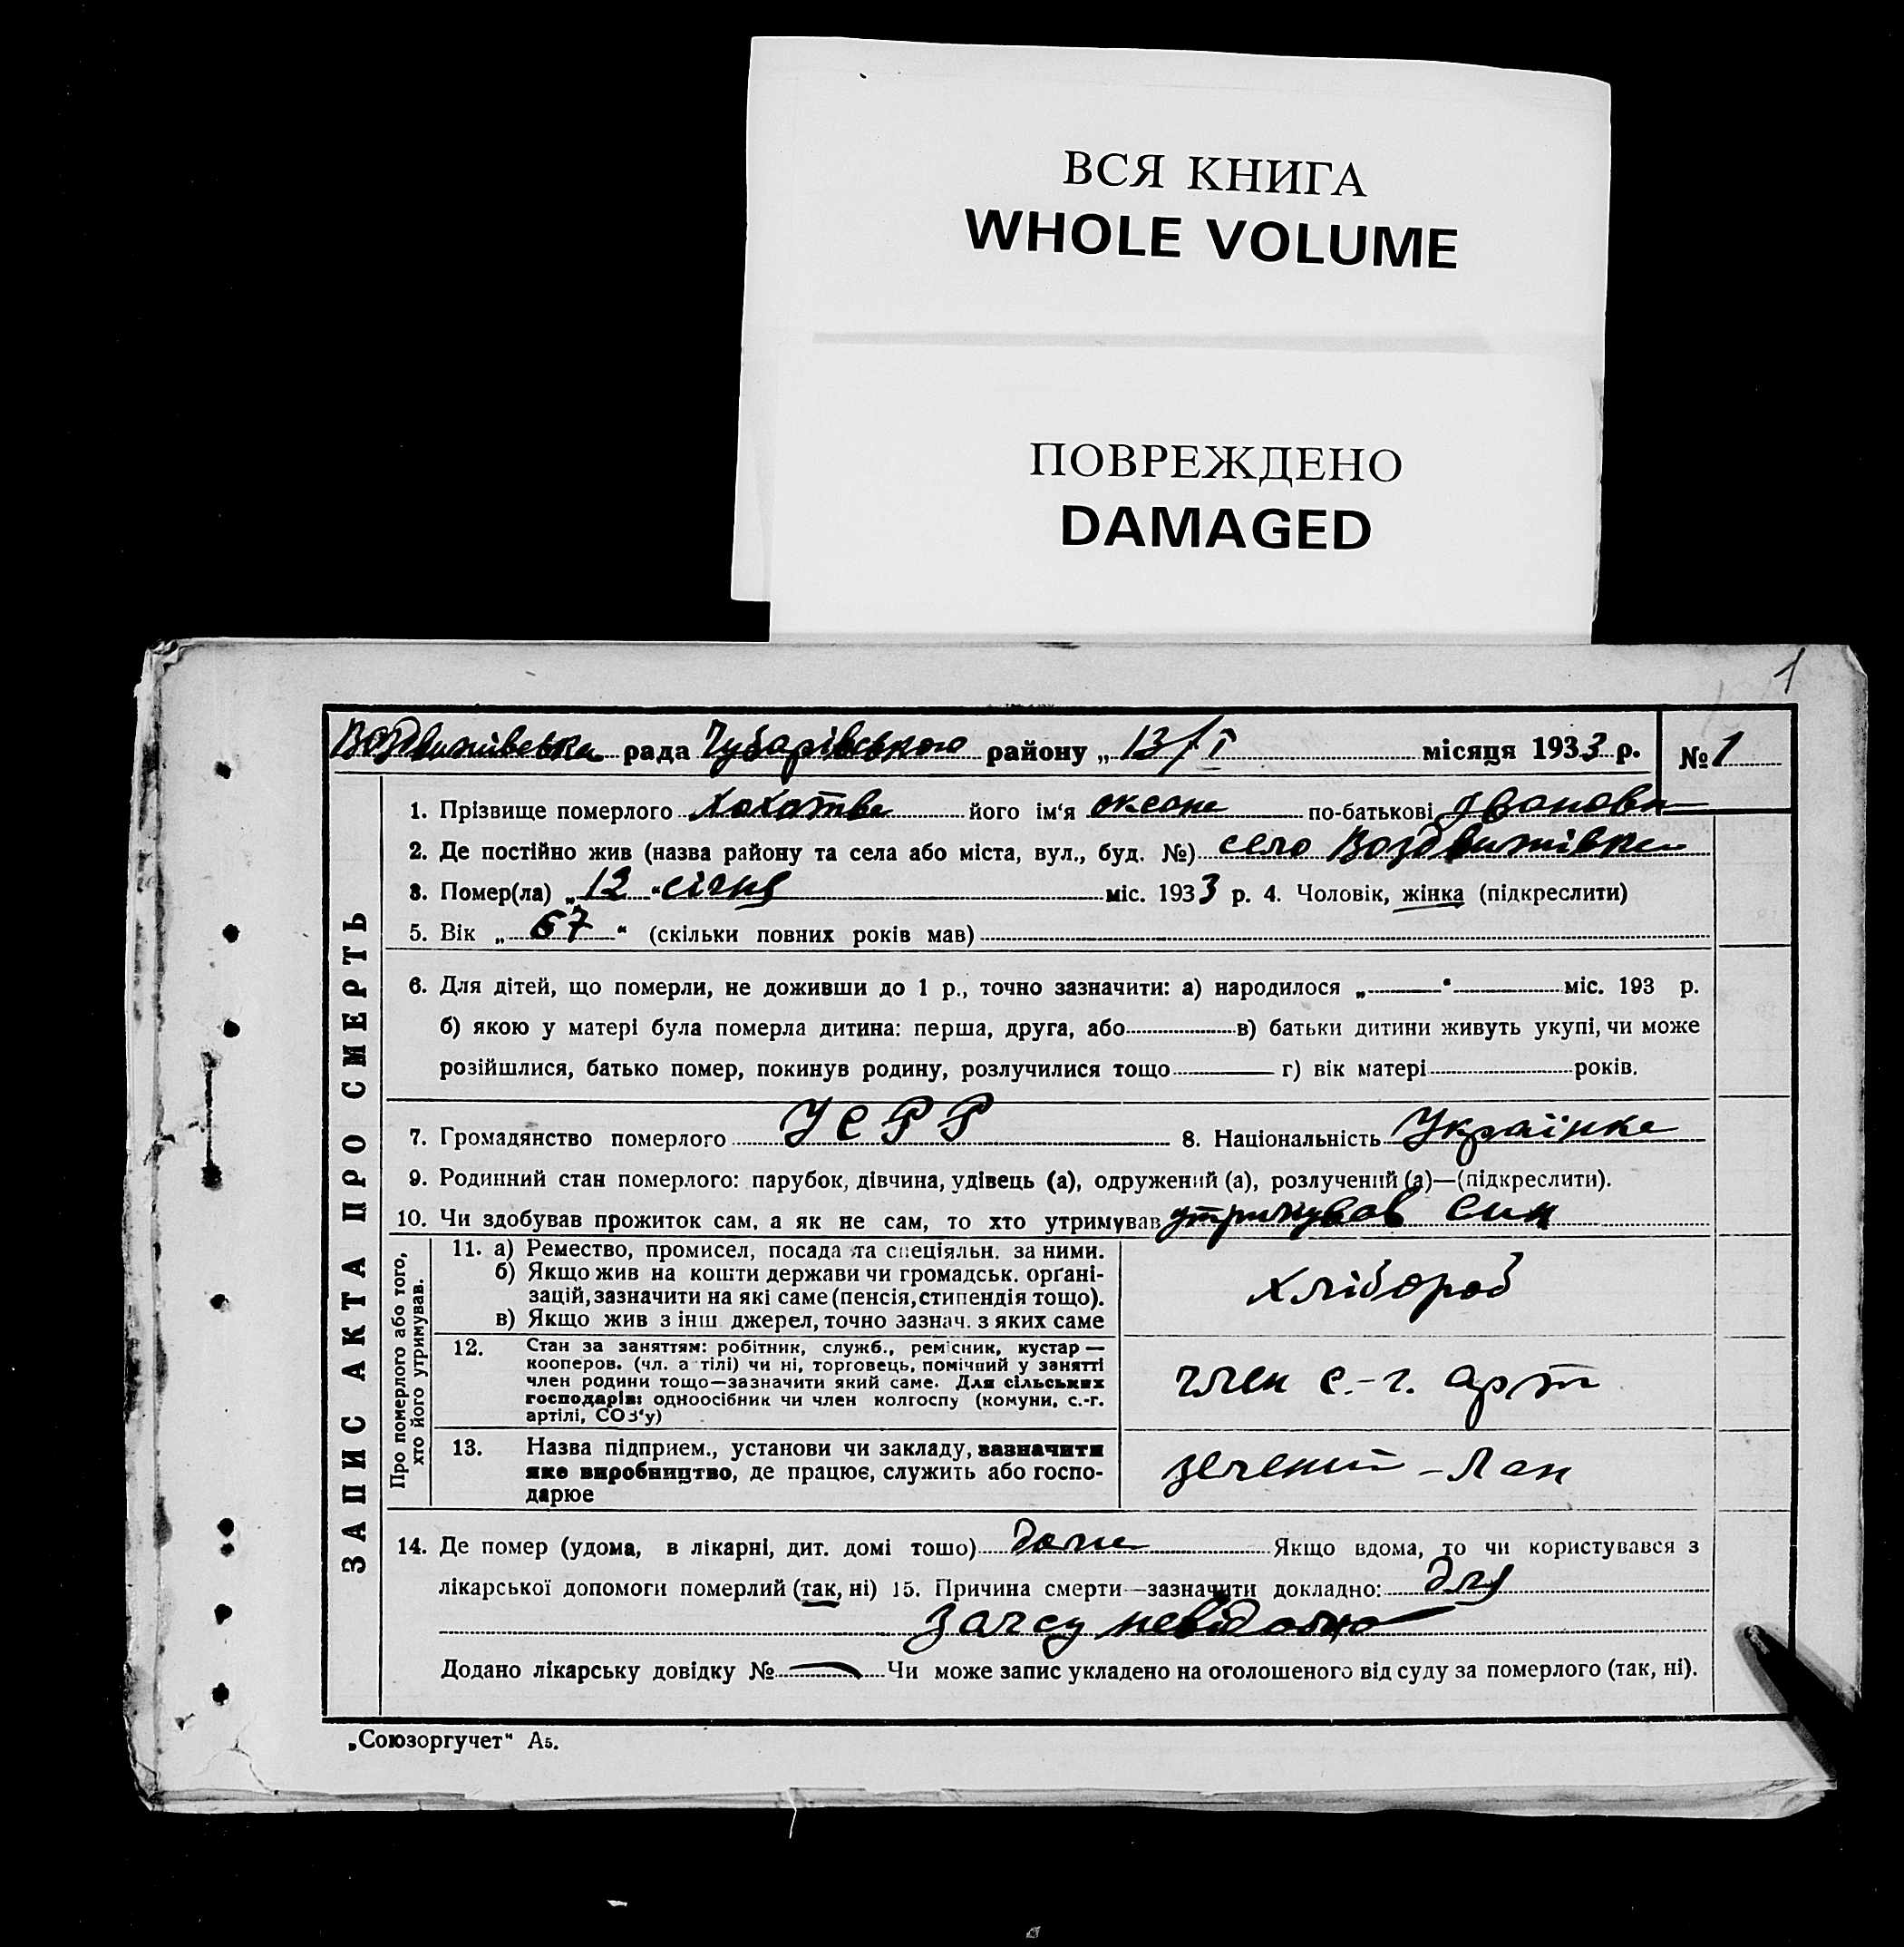 ВСЯ КНИГА
WHOLE VOLUME
ПОВРЕЖДЕНО
DAMAGED
1
Воздвижівська рада Чубарівського району „13/I місяця 1933 р. № 1
ЗАПИС АКТА ПРО СМЕРТЬ
1. Прізвище померлого його ім‘я оксана по-батькові Івановна
2. Де постійно жив (назва району та села або міста, вул., буд. №) село Воздвижівка
3. Помер(ла) „12“ січня міс. 1933 р. 4. Чоловік, жінка (підкреслити)
5. Вік „67“ (скільки повних років мав)
6. Для дітей, що померли, не доживши до 1 р., точно зазначити: а) народилося „ “ міс. 193 р.
б) якою у матері була померла дитина: перша, друга, або в) батьки дитини живуть укупі, чи може
розійшлися, батько помер, покинув родину, розлучилися тощо г) вік матері років.
7. Громадянство померлого УСРР 8. Національність Українка
9. Родинний стан померлого: парубок, дівчина, удівець (а), одружений (а), розлучений (а)—(підкреслити).
10. Чи здобував прожиток сам, а як не сам, то хто утримував утримував син
Про померлого або того,
хто його утримував.
11. а) Ремество, промисел, посада та спеціяльн. за ними.
б) Якщо жив на кошти держави чи громадськ. орґані-
зацій, зазначити на які саме (пенсія, стипендія тощо).
в) Якщо жив з інш. джерел, точно зазнач. з яких саме
хлібороб
12. Стан за заняттям: робітник, служб., ремісник, кустар —
кооперов. (чл. артілі) чи ні, торговець, помічний у занятті
член родини тощо—зазначити який саме. Для сільських
господарів: одноосібник чи член колгоспу (комуни, с.-г.
артілі, СОЗ‘у)
член с.-г. арт
13. Назва підприєм., установи чи закладу, зазначити
яке виробництво, де працює, служить або госпо-
дарює
зелений - Лан
14. Де помер (удома, в лікарні, дит. домі тощо) дома Якщо вдома, то чи користувався з
лікарської допомоги померлий (так, ні) 15. Причина смерти—зазначити докладно: для
загсу невідомо
Додано лікарську довідку № Чи може запис укладено на оголошеного від суду за померлого (так, ні).
„Союзоргучет“ А5.